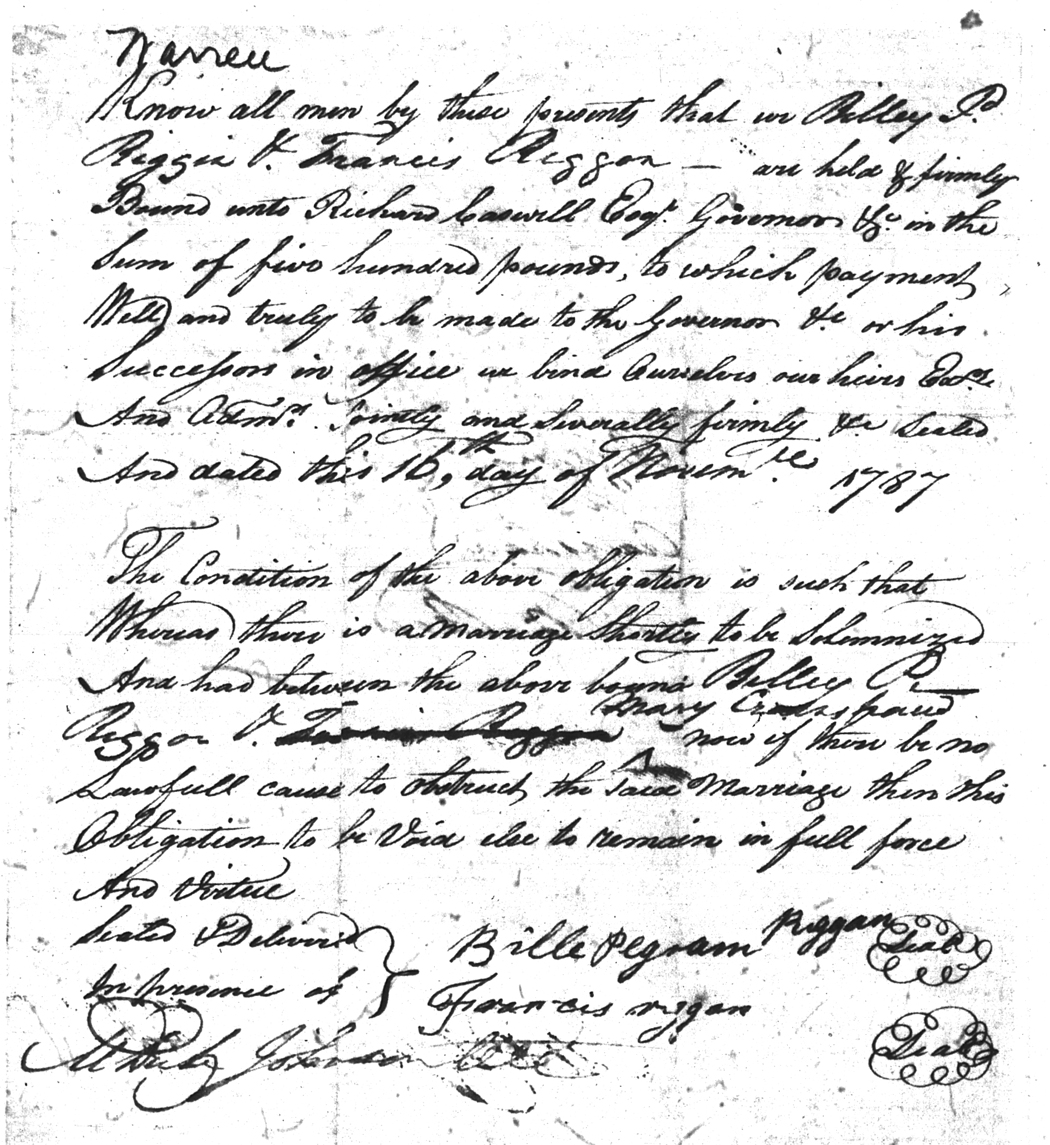 Warren
Know all men by these presents that we Billey P.
Riggin & Francis Riggon — are held & firmly
Bound unto Richard Caswell Esqr. Governor &c. in the
Sum of five hundred pounds, to which payment
Well and truly to be made to the Governor &c or his
Successors in office we bind Ourselves our heirs Exrs.
And Admrs. Jointly and Severally firmly &c Sealed
And dated this 16th, day of Novemr. 1787
The Condition of the above obligation is such that
Whereas there is a Marriage Shortly to be Solemnized
And had between the above bound Billey P.
Mary
Riggon & Francis Riggon now if there be no
Lawfull cause to obstruct the said Marriage then this
Obligation to be Void else to remain in full force
And Virtue
Sealed & Deliverid
In presence of
Bille Pegram Riggan Seal
Francis rygan Seal
Johnson